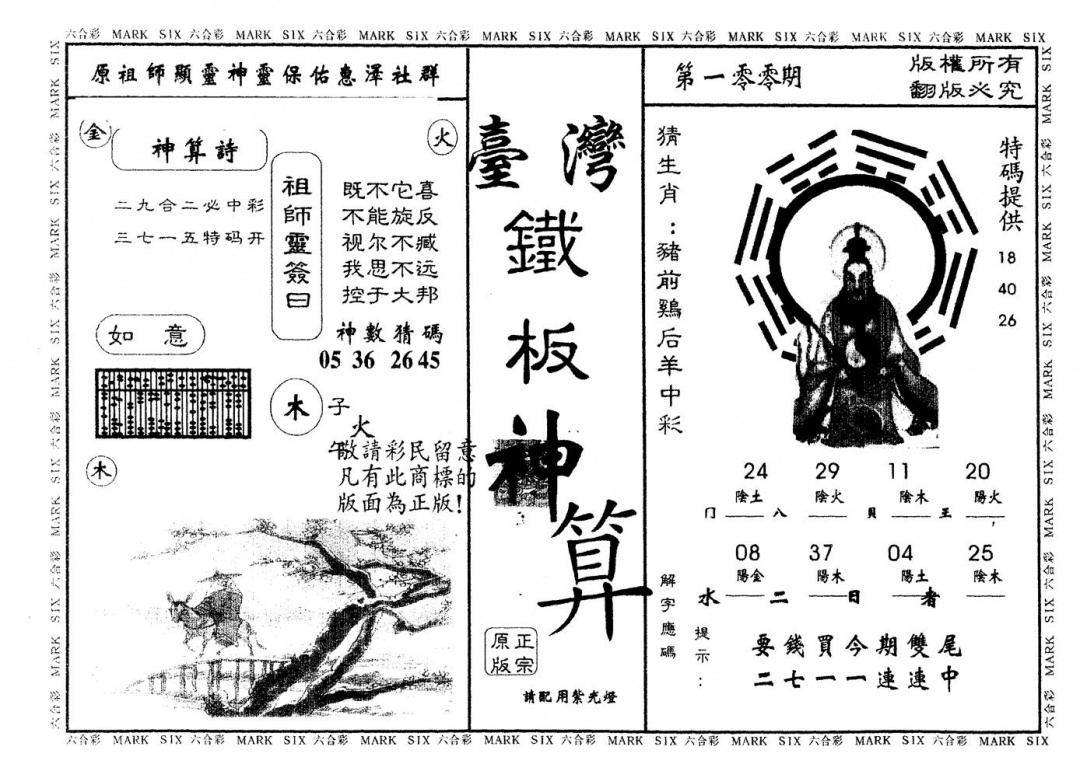 六合彩 MARK SIX 六合彩 MARK SIX 六合彩 MARK SIX 六合彩 MARK SIX 六合彩 MARK SIX 六合彩 MARK SIX 六合彩 MARK SIX 六合彩 MARK SIX
原祖師顯靈神靈保佑惠澤社群
金
神算詩
火
二九合二必中彩
三七一五特码开
祖師靈簽曰
既不它喜
不能旋反
视尔不臧
我思不远
控于大邦
神數猜碼
05 36 26 45
如意
木
子
火
午
敬請彩民留意
凡有此商標的
版面為正版!
木
臺灣
鐵
板
神
算
正宗
原版
請配用紫光燈
第一零零期
版權所有
翻版必究
猜生肖:豬前鷄后羊中彩
特碼提供
18
40
26
24 29 11 20
陰土 陰火 陰木 陽火
门 八 貝 王
08 37 04 25
陽金 陽木 陽土 陰木
水 二 日 者
解字應碼
提示:
要錢買今期雙尾
二七一一連連中
六合彩 MARK SIX 六合彩 MARK SIX 六合彩 MARK SIX 六合彩 MARK SIX 六合彩 MARK SIX 六合彩 MARK SIX 六合彩 MARK SIX 六合彩 MARK SIX